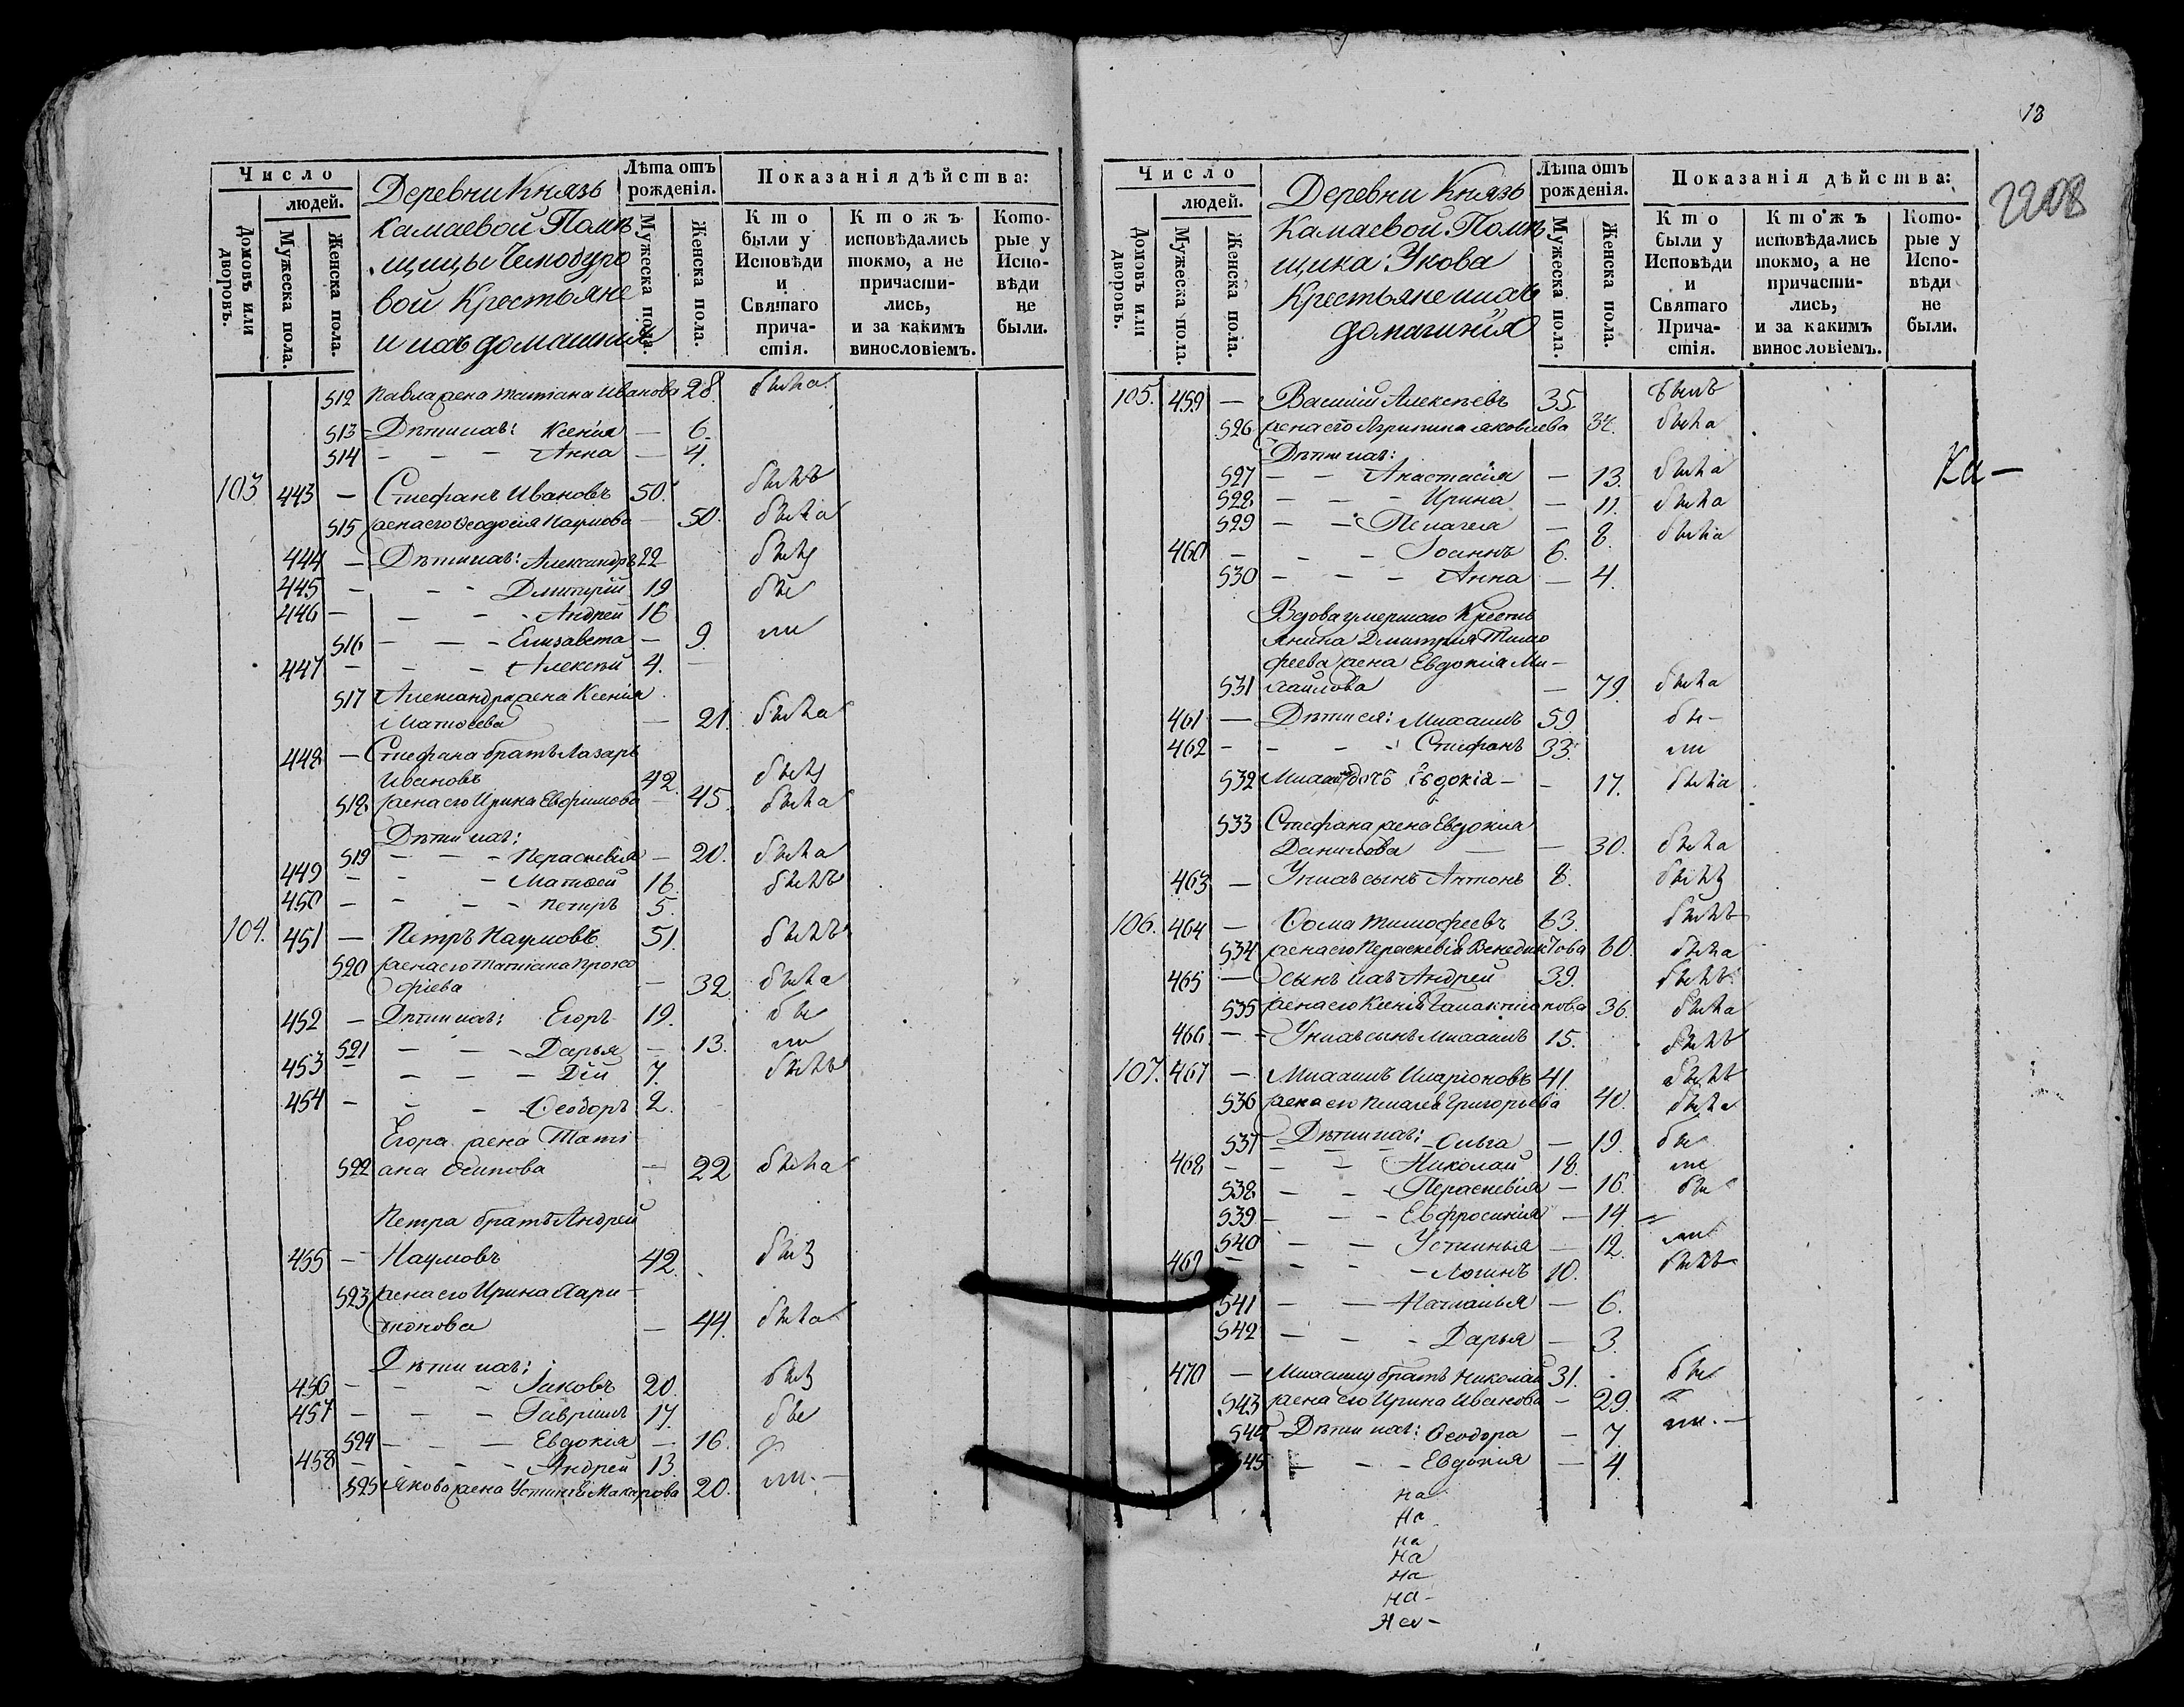 Число
людей.
Домовъ или дворовъ.
Мужеска пола.
Женска пола.
Деревни Князь
Камаевой Помѣ
щицы
вой Крестьяне
и ихъ домашнія
Лѣта отъ рожденія.
Мужеска пола.
Женска пола.
Показанія дѣйства:
Кто были у Исповѣди и Святаго причастія.
Ктожъ исповѣдались токмо, а не причастились, и за какимъ винословіемъ.
Которые у Исповѣди не были.
512 Павла жена Татіана Иванова 28. была
513 Дѣти ихъ: Ксенія — 6.
514 - - - Анна — 4.
103 443 — Стефанъ Ивановъ 50. былъ
515 жена его Ѳеодосія Наумова — 50. была
444 — Дѣти ихъ: Александръ 22
445 - - - Дмитрій 19 бы
446 - - - Андрей 16
516 - - - Елисавета — 9. ли
447 - - - Алексѣй 4. —
517 Александра жена Ксенія
Матѳеева — 21. была
448 — Стефана братъ Лазарь
Ивановъ 42.
518 жена его Ирина Евфимова — 45. была
Дѣти ихъ:
519 - - - Параскевія — 20. была
449 - - - Матѳей 16. былъ
450 - - - Петръ 5.
104. 451 — Петръ Наумовъ 51. былъ
520 жена его Татіана Проко
фіева — 32 была
452 — Дѣти ихъ: Егоръ 19. бы
521 - - - Дарья — 13. ли
453 - - - Дій 7. былъ
454 - - - Ѳеодоръ 2.
Егора жена Тати
522 ана Осипова — 22 была
Петра братъ Андрей
455 — Наумовъ 42.
523 жена его Ирина Лари
онова — 44. была
Дѣти ихъ:
456 - - - Іаковъ 20.
457 - - - Гавріилъ 17. бы
524 - - - Евдокія — 16.
458 - - - Андрей 13.
525 Якова жена Устинія Макарова 20. ли. —
18
2208
Число
людей.
Домовъ или дворовъ.
Мужеска пола.
Женска пола.
Деревни Князь
Камаевой Помѣ
щика Укова
Крестьяне и ихъ
домашнія
Лѣта отъ рожденія.
Мужеска пола.
Женска пола.
Показанія дѣйства:
Кто были у Исповѣди и Святаго Причастія.
Ктожъ исповѣдались токмо, а не причастились, и за какимъ винословіемъ.
Которые у Исповѣди не были.
105. 459 — Василій Алексѣевъ 35 былъ
526 жена его Агрипина Яковлева 34. была
Дѣти ихъ:
527 - - Анастасія — 13. была
528 - - - Ирина — 11. была
529 - - Пелагея — 8. была
460 - - - Іоаннъ 6.
530 - - - Анна — 4.
Ка —
Вдова умершаго Кресть
янина Дмитрія Тимо
феева жена Евдокія Ми-
531 хайлова — 79. была
461 — Дѣти ея: Михаилъ 59. бы-
462 - - - Стефанъ 33. ли
532 Миха дочь Евдокія — 17. была
533 Стефана жена Евдокія
Данилова — 30. была
463 — У нихъ сынъ Антонъ 8.
106. 464 — Ѳома Тимофеевъ 63. былъ
534 жена его Параскевія Венедиктова 60. была
465 — сынъ ихъ Андрей 39. былъ
535 жена его Ксенія Галактіонова 36. была
466 — У нихъ сынъ Михаилъ 15. былъ
107. 467 — Михаилъ Иларіоновъ 41. былъ
536 жена его Пелагея Григорьева 40. была
537 Дѣти ихъ: Ольга — 19. бы
468 - - - Николай 18. ли
538 - - - Параскевія — 16. бы
539 - - - Евфросинія — 14
540 - - Устинья — 12. ли
469 - - - Логинъ 10. былъ
541 - - Наталья — 6.
542 - - - Дарья — 3.
470 — Михаилу братъ Николай 31. бы
543 жена его Ирина Иванова — 29.
544 Дѣти ихъ: Ѳеодора — 7. ли. —
545 - - - Евдокія — 4.
на
на
на
на
на
на -
на -